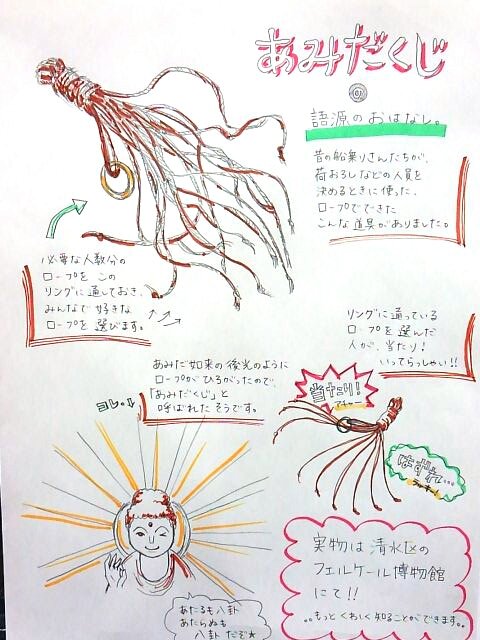 あみだくじ
語源のおはなし。
昔の船乗りさんたちが、
荷おろしなどの人員を
決めるときに使った、
ロープでできた
こんな道具がありました。
必要な人数分の
ロープを この
リングに通しておき、
みんなで好きな
ロープを選びます。
リングに通っている
ロープを選んだ
人が、当たり!
いってらっしゃい!!
あみだ如来の後光のように
ロープがひろがったので、
「あみだくじ」と
呼ばれたそうです。
ヨレ・↓
当たり!
アチャー
はずれ...
ラッキー!
あたるも八卦
あたらぬも
八卦だぞ★
実物は清水区の
フェルケール博物館
にて!!
。。もっとくわしく知ることができます。。